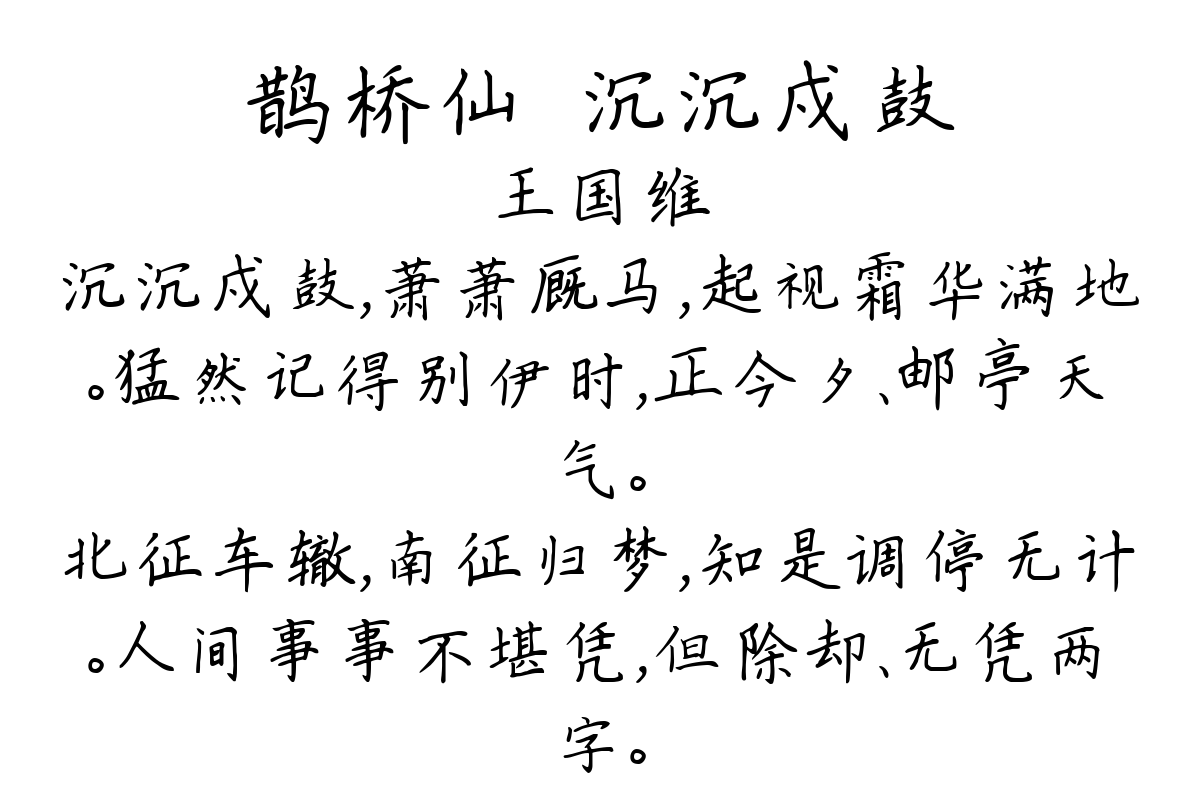 鹊桥仙 沉沉戍鼓
王国维
沉沉戍鼓,萧萧厩马,起视霜华满地
。猛然记得别伊时,正今夕、邮亭天
气。
北征车辙,南征归梦,知是调停无计
。人间事事不堪凭,但除却、无凭两
字。